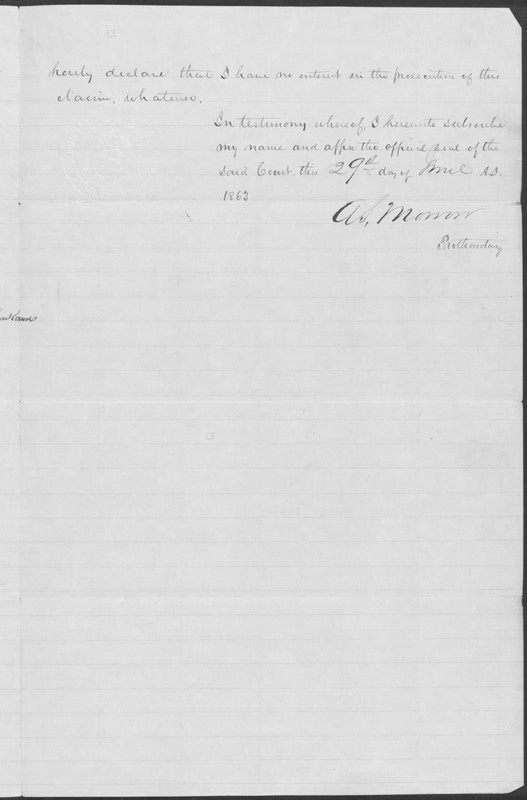 hereby declare that I have no interest in the prosecution of this
claim, whatever.
In testimony whereof, I hereunto subscribe
my name and affix the official seal of the
said Court this 29th day of April A.D.
1863
Morrow
Prothonotary